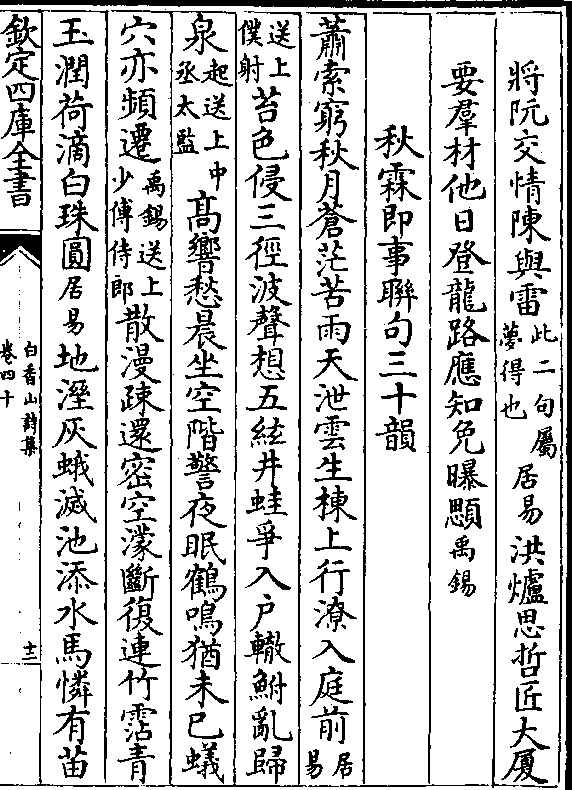 將阮交情陳與雷此二句屬夢得也居易洪爐思哲匠大厦
要羣材他日登龍路應知免曝顋禹錫
秋霖即事聯句三十韻
蕭索窮秋月蒼茫苦雨天泄雲生棟上行潦入庭前居易
送上僕射苔色侵三徑波聲想五絃井蛙爭入户轍鮒亂歸
泉起送上中丞太監高響愁晨坐空階警夜眠鶴鳴猶未已蟻
穴亦頻遷禹錫送上少傅侍郎散漫疎還密空濛斷復連竹霑青
玉潤荷滴白珠圓居易地溼灰蛾滅池添水馬憐有苗
欽定四庫全書
白香山詩集
卷四十
十二